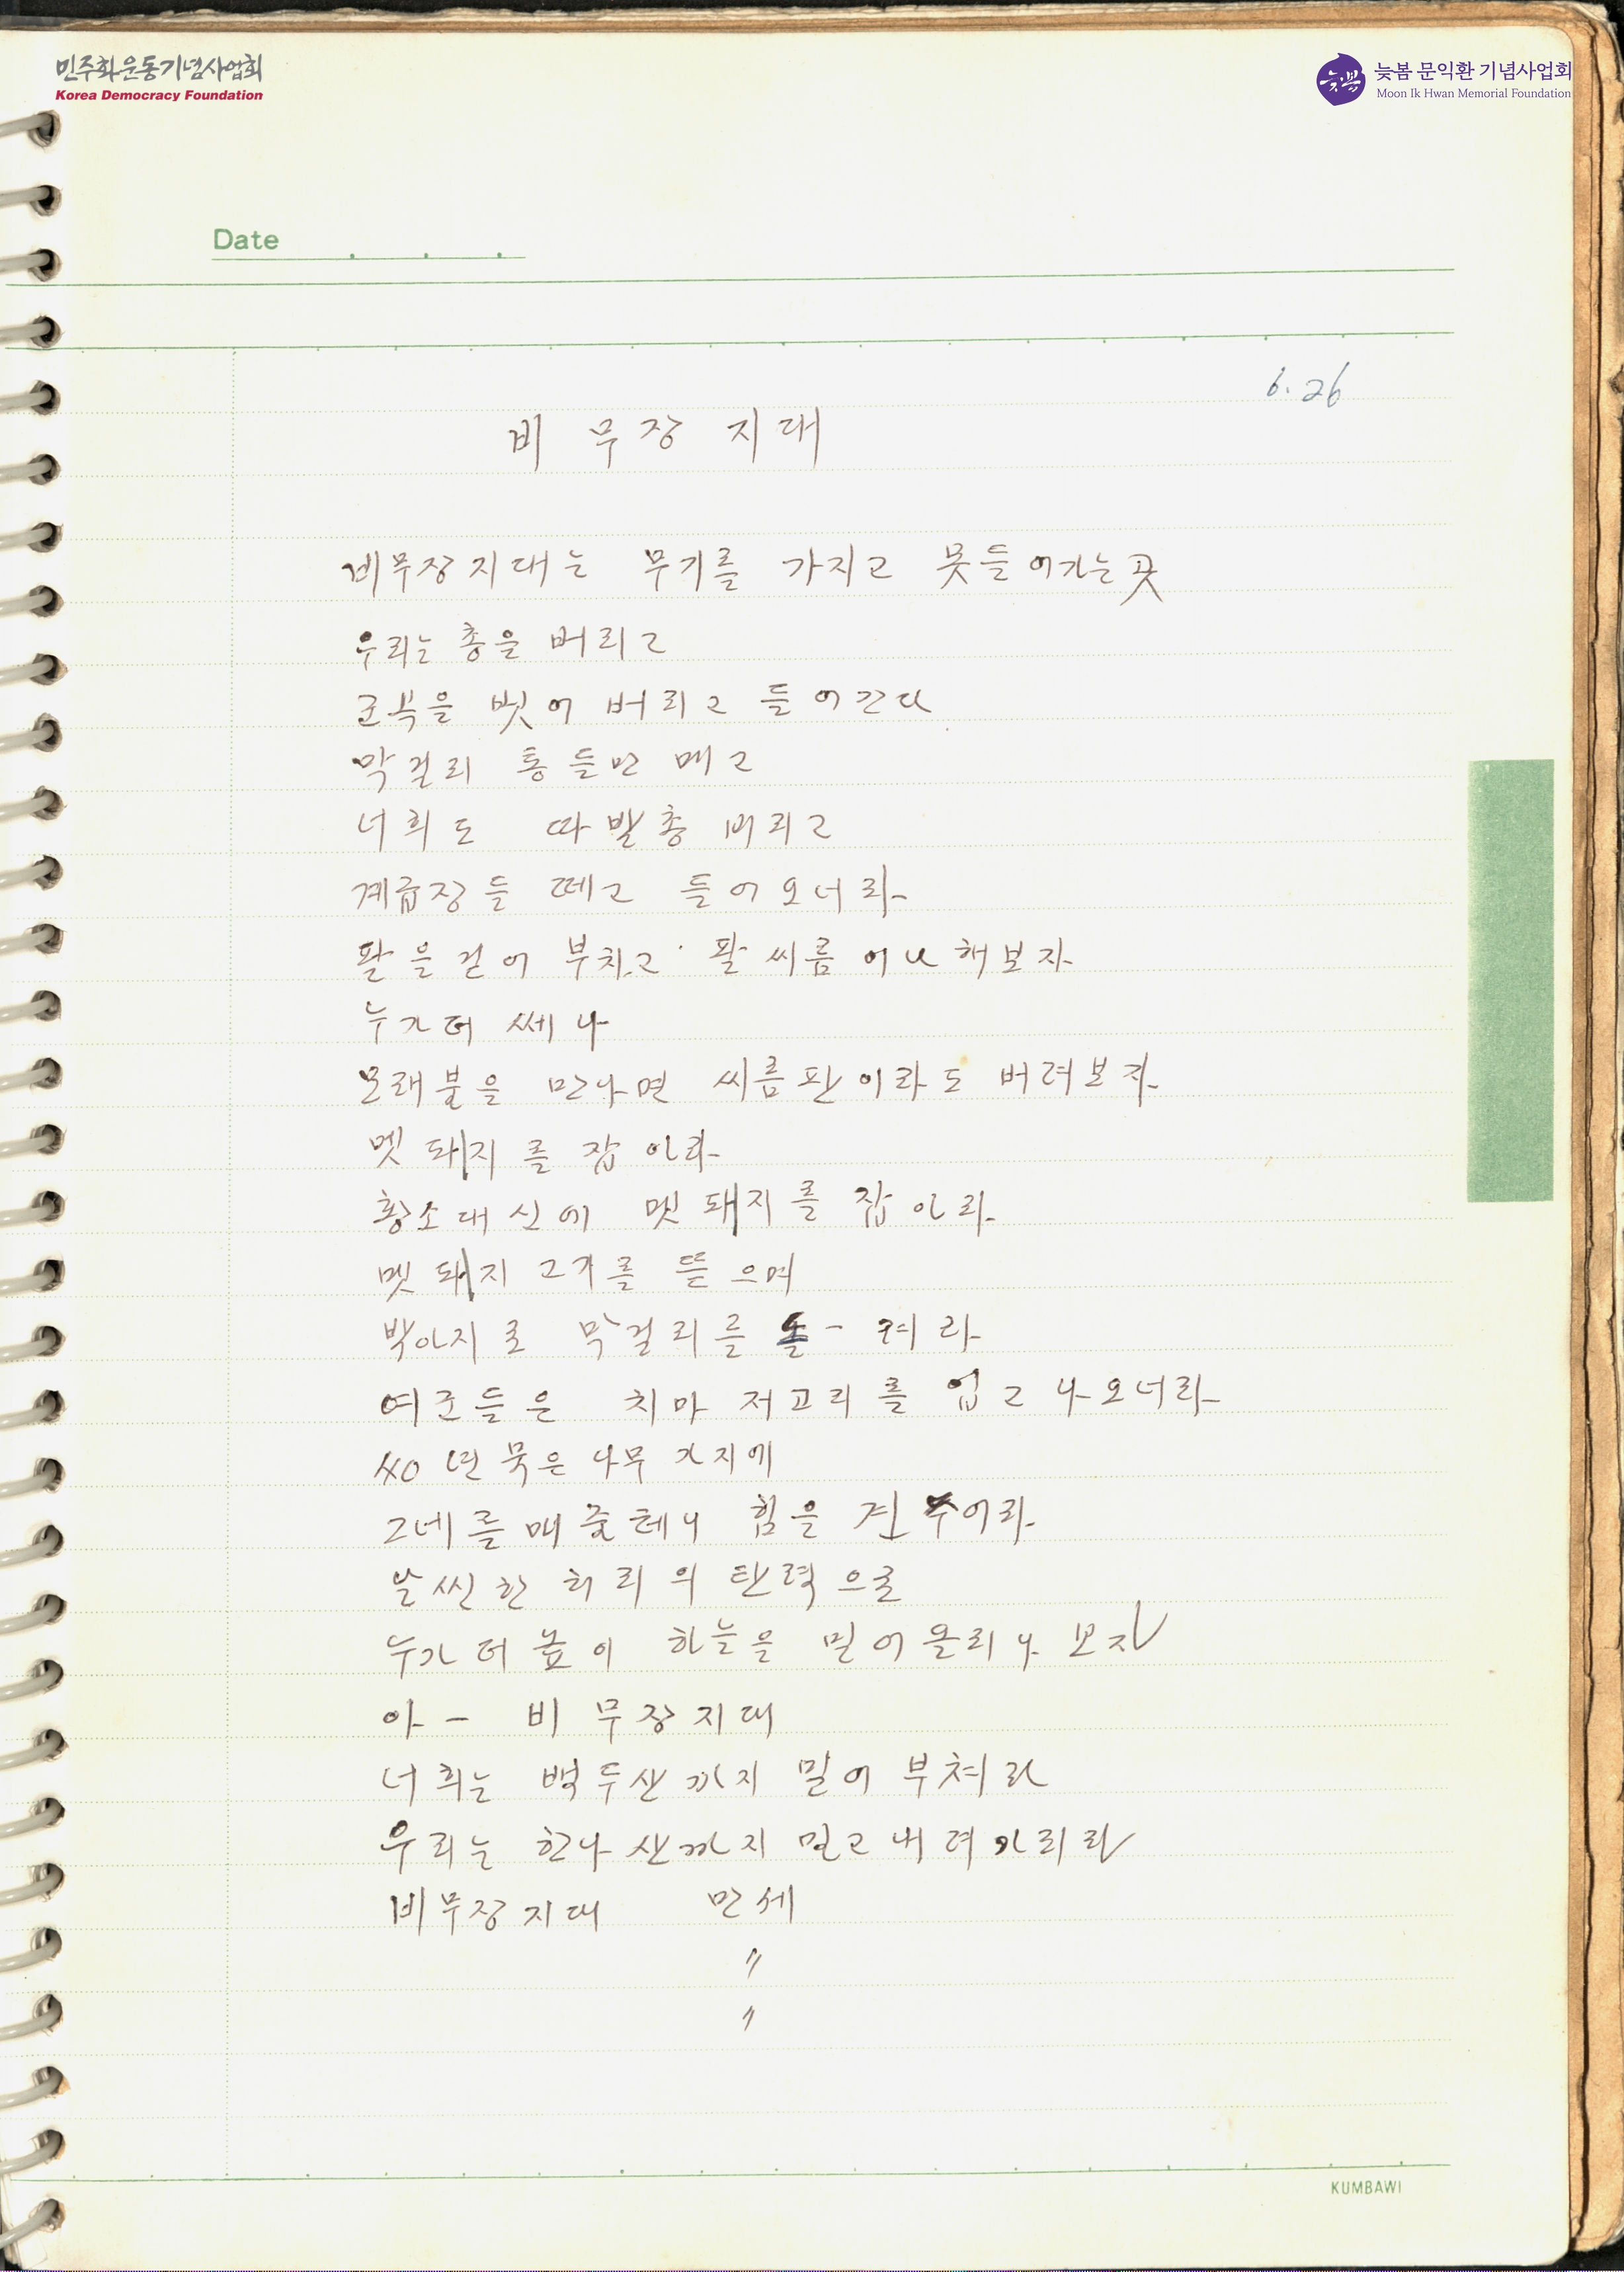 민주화운동기념사업회
Korea Democracy Foundation
늦봄 문익환 기념사업회
Moon Ik Hwan Memorial Foundation
늦봄
Date
6. 26
비무장 지대
비무장지대는 무기를 가지고 못들어가는 곳
우리는 총을 버리고
군복을 벗어 버리고 들어간다
막걸리 통들만 메고
너희도 따발총 버리고
계급장들 떼고 들어오너라
팔을 걷어 부치고 팔씨름이나 해보자
누가 더 쎄나
모래불을 만나면 씨름판이라도 버려보자
멧돼지를 잡아라
황소대신에 멧돼지를 잡아라
멧돼지 고기를 뜯으며
박아지로 막걸리를 돌 - 려라
여군들은 치마 저고리를 입고 나오너라
40년 묵은 나무가지에
그네를 매 줄테니 힘을 겨누어라
날씬한 허리의 탄력으로
누가 더 높이 하늘을 밀어올리나 보자
아 - 비무장지대
너희는 백두산까지 밀어 부쳐라
우리는 한라산까지 밀고 내려가리라
비무장지대 만세
〃
〃
KUMBAWI